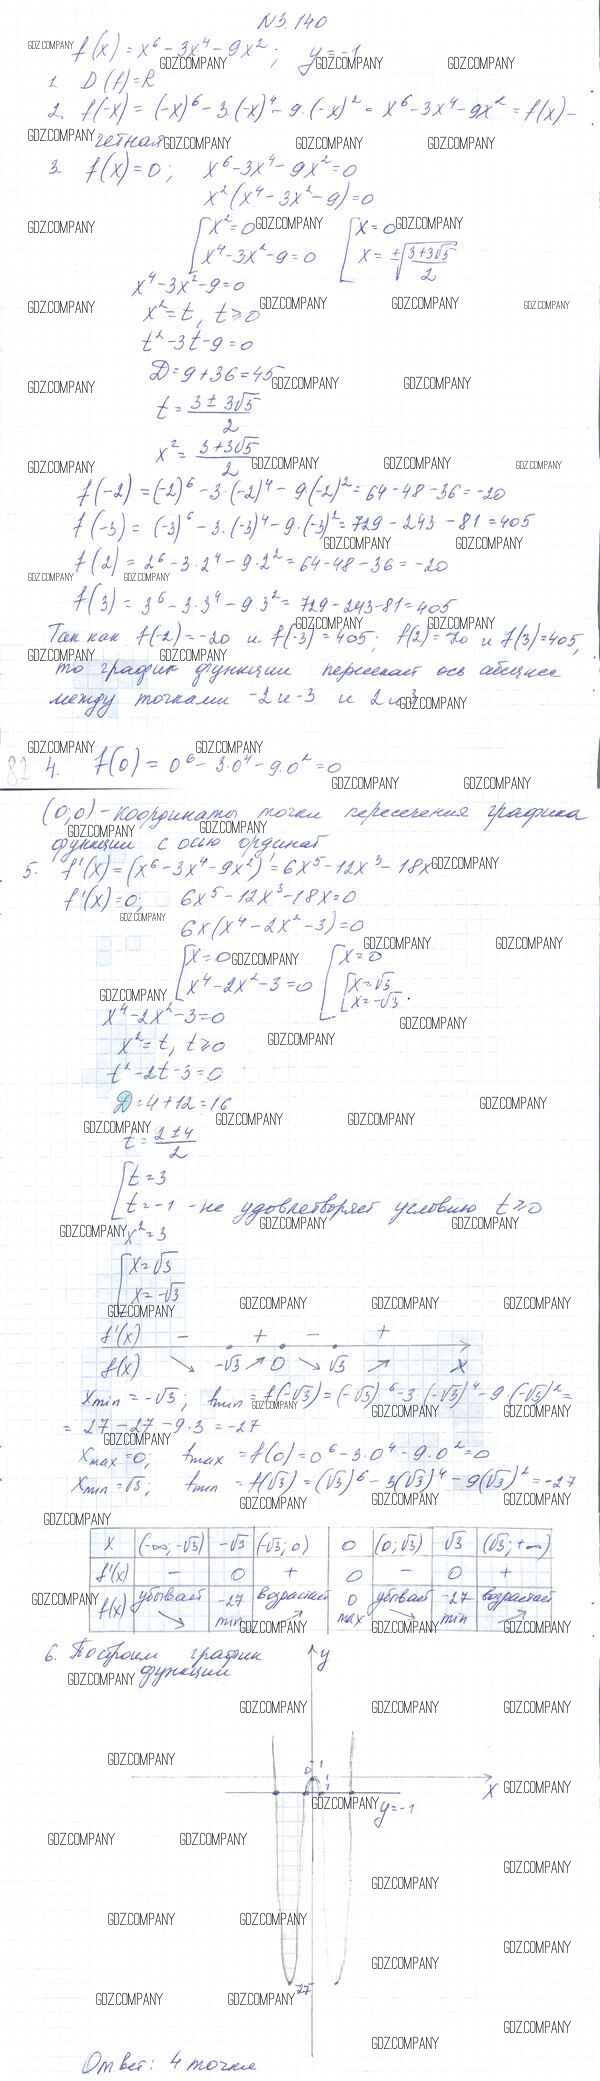 N3.140
f(x) = x⁶ - 3x⁴ - 9x²; y = -1
1. D(f) = R
2. f(-x) = (-x)⁶ - 3·(-x)⁴ - 9·(-x)² = x⁶ - 3x⁴ - 9x² = f(x) -
четная
3. f(x) = 0; x⁶ - 3x⁴ - 9x² = 0
x²(x⁴ - 3x² - 9) = 0
[x² = 0 [x = 0
x⁴ - 3x² - 9 = 0 x = ±√((3+3√5)/2)
x⁴ - 3x² - 9 = 0
x² = t, t ≥ 0
t² - 3t - 9 = 0
D = 9 + 36 = 45
t = (3 ± 3√5)/2
x² = (3+3√5)/2
f(-2) = (-2)⁶ - 3·(-2)⁴ - 9·(-2)² = 64 - 48 - 36 = -20
f(-3) = (-3)⁶ - 3·(-3)⁴ - 9·(-3)² = 729 - 243 - 81 = 405
f(2) = 2⁶ - 3·2⁴ - 9·2² = 64 - 48 - 36 = -20
f(3) = 3⁶ - 3·3⁴ - 9·3² = 729 - 243 - 81 = 405
Так как f(-2) = -20 и f(-3) = 405; f(2) = -20 и f(3) = 405,
то график функции пересекает ось абсцисс
между точками -2 и -3 и 2 и 3
82 4. f(0) = 0⁶ - 3·0⁴ - 9·0² = 0
(0;0) - координаты точки пересечения графика
функции с осью ординат
5. f'(x) = (x⁶ - 3x⁴ - 9x²)' = 6x⁵ - 12x³ - 18x
f'(x) = 0; 6x⁵ - 12x³ - 18x = 0
6x(x⁴ - 2x² - 3) = 0
[x = 0 [x = 0
x⁴ - 2x² - 3 = 0 [x = √3
x = -√3.
x⁴ - 2x² - 3 = 0
x² = t, t ≥ 0
t² - 2t - 3 = 0
D = 4 + 12 = 16
t = (2 ± 4)/2
[t = 3
t = -1 - не удовлетворяет условию t ≥ 0
x² = 3
[x = √3
x = -√3
f'(x) - + - +
f(x) ↘ -√3 ↗ 0 ↘ √3 ↗ x
xmin = -√3; fmin = f(-√3) = (-√3)⁶ - 3(-√3)⁴ - 9·(-√3)² =
= 27 - 27 - 9·3 = -27
xmax = 0; fmax = f(0) = 0⁶ - 3·0⁴ - 9·0² = 0
xmin = √3; fmin = f(√3) = (√3)⁶ - 3(√3)⁴ - 9(√3)² = -27
x (-∞; -√3) -√3 (-√3; 0) 0 (0; √3) √3 (√3; +∞)
f'(x) - 0 + 0 - 0 +
f(x) убывает ↘ -27 min возрастает ↗ 0 max убывает ↘ -27 min возрастает ↗
6. Построим график
функции
y
1
0 1
x
y = -1
-27
Ответ: 4 точки
GDZ.COMPANY